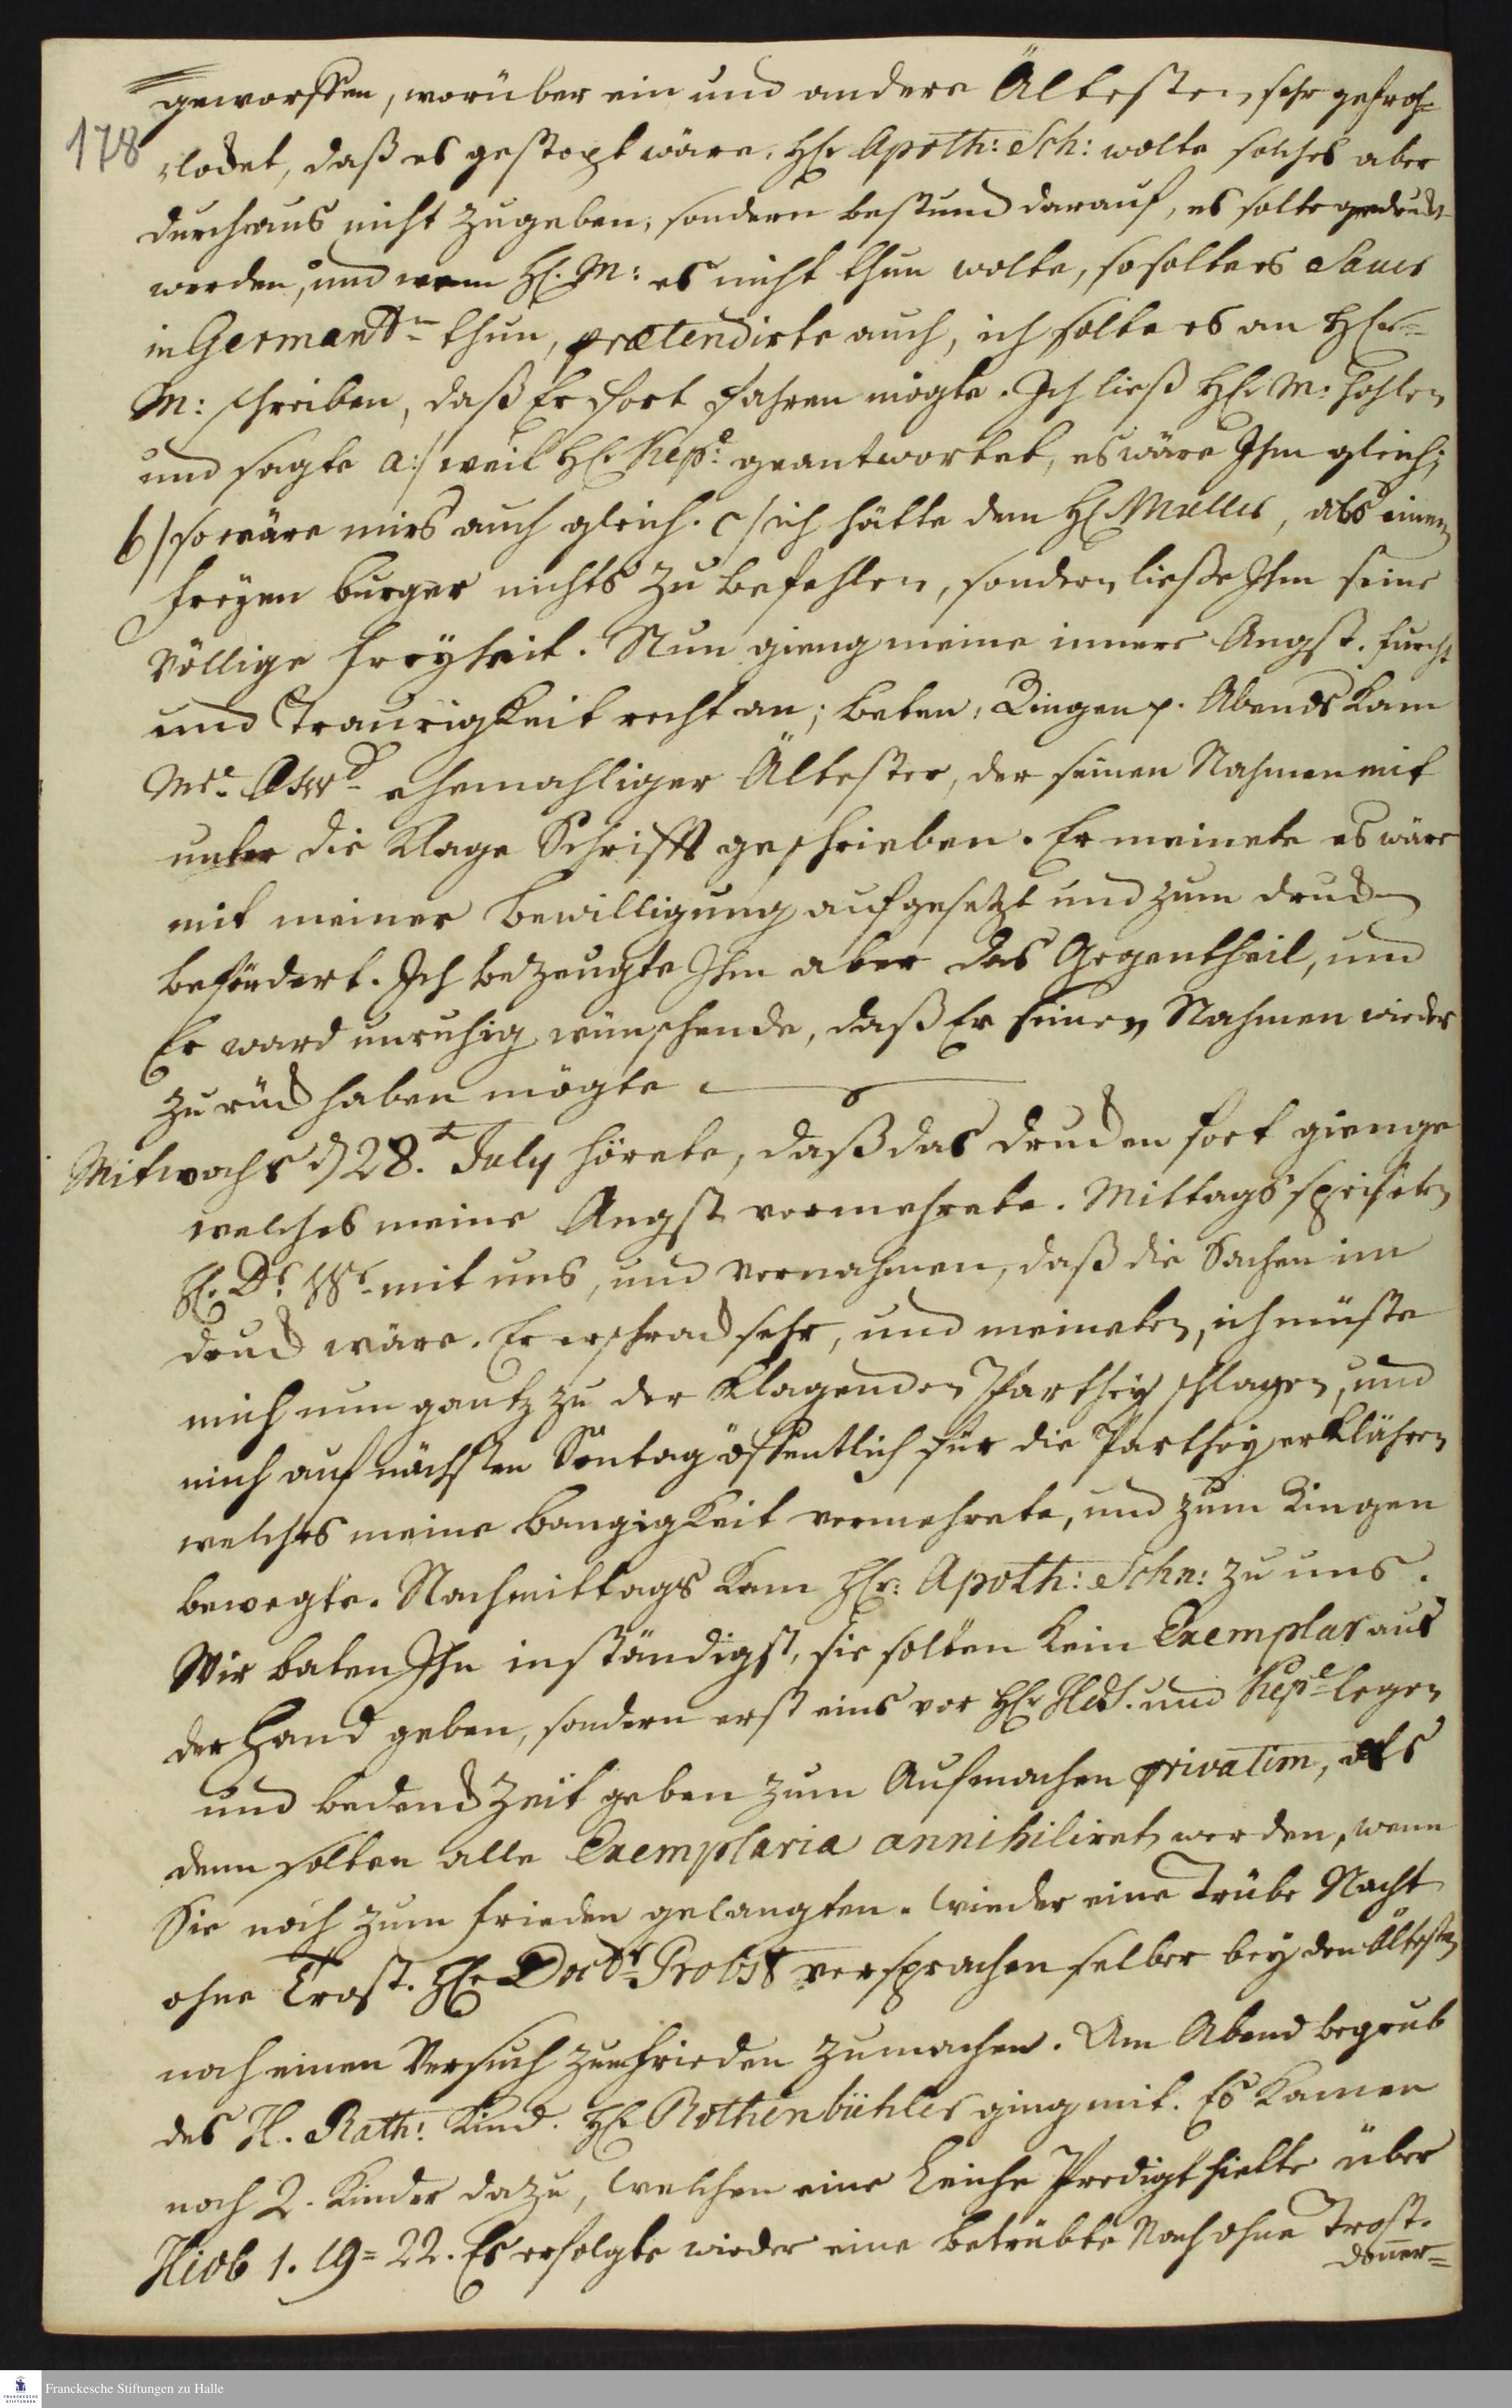 geworffen, worüber ein und andere Ältesten sehr gefroh-
178
lockt, daß es gestopt wäre. HE Apoth: Sch: wolte solches aber
durchaus nicht zugeben, sondern bestund darauf, es solte gedruckt
werden, und wenn HE. M: es nicht thun wolte, so solte es Saur
in Germant- thun, prætendirte auch, ich solte es an HEr-
M: schreiben, daß Er fort fahren mögte. Ich ließ HE M: hohlen
und sagte a:/ weil HE. Kepe: geantwortet, es wäre Ihm gleich;
b/ so wäre mirs auch gleich. c/ ich hätte dem HE. Muller, als einem
freyen burger nichts zu befehlen, sondern ließe Ihm seine
völlige freyheit. Nun gieng meine innere Angst. furcht
und Traurigkeit recht an; beten, Ringen p. Abends kam
Mr. Oswd- ehemahliger Ältester, der seinen Nahmen mit
unter die Klage Schrifft geschrieben. Er meinete es wäre
mit meiner bewilligung aufgesetzt und zum druck
befördert. Ich bezeugte Ihm aber das Gegentheil, und
Er ward unruhig wünschende, daß Er seinen Nahmen wieder
zurück haben mögte
Mitwochs d 28.t July hörete, daß das drucken fort gienge
welches meine Angst vermehrete. Mittags speiseten
HE. Dr. Wr- mit uns, und vernahmen, daß die Sachen im
druck wäre. Er erschrack sehr, und meineten, ich müste
mich nun gantz zu der klagenden Parthey schlagen, und
mich auf nächsten Sontag öffentlich für die Parthey erklähren
welches meine bangigkeit vermehrete, und zum Ringen
bewegte. Nachmittags kam HEr: Apoth: Schn: zu uns.
Wir baten Ihn inständigst, sie solten kein Exemplar aus
der hand geben, sondern erst eins vor HE und Kepe- legen
und bedenck Zeit geben zum Aufmachen privatim, als
denn solten alle Exemplaria annihiliret werden, wenn
Sie noch zum frieden gelangten. Wieder eine trübe Nacht
ohne Trost. HE Doct- Probst versprachen selber bey den Ältesten
noch einen Versuch zum frieden zu machen. Am Abend begrub
des H. Rath: Kind. HE Rothenbühler ging mit. Es kamen
noch 2. Kinder dazu, welchen eine Leiche Predigt hielte über
Hiob 1. 19=22. Es erfolgte wieder eine betrübte Nach ohne Trost.
doner=
Franckesche Stiftungen zu Halle